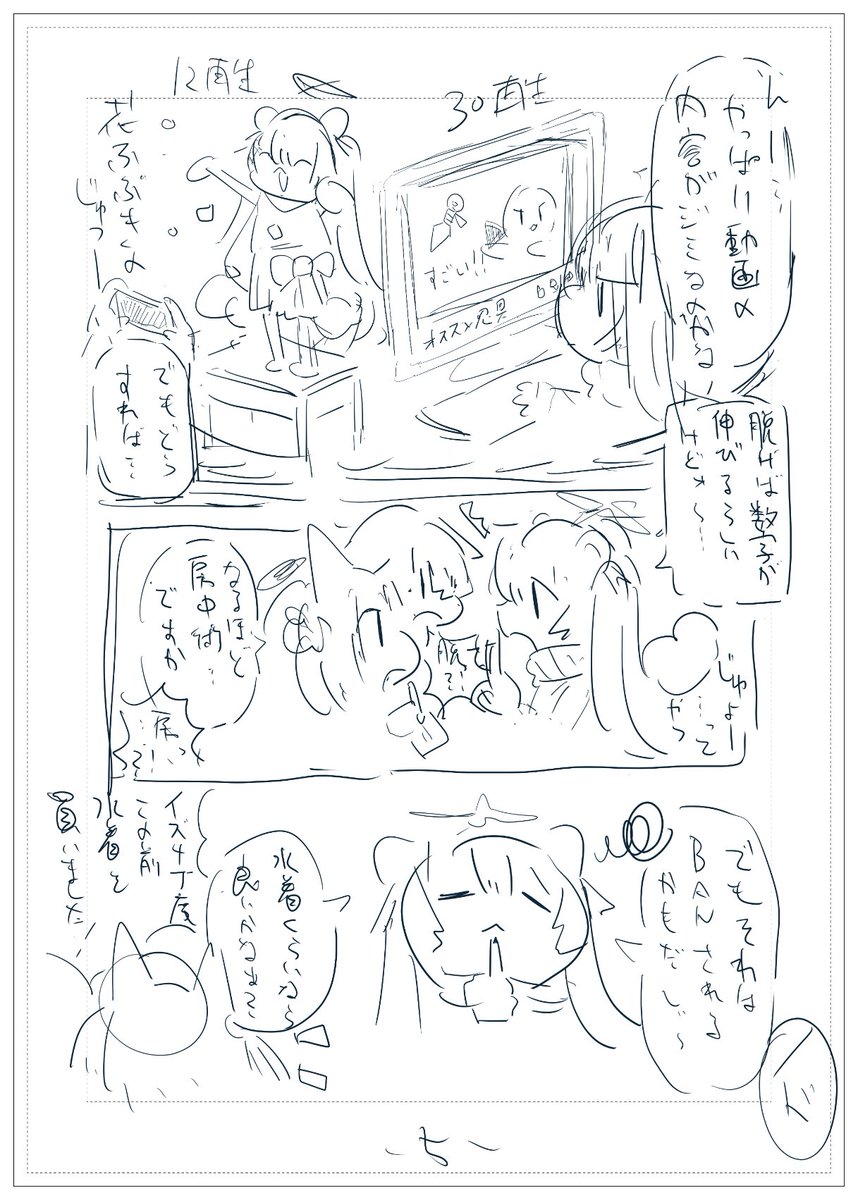 んー…
やっぱり動画の
内容がジミなのかな
30再生
すごい!!
オススメ忍具
12再生
花ふぶきの
じゅつー
でもどう
すれば…
脱げば数字が
伸びるらしい
けどぉ〜…
じょよー
…って
やつ
脱
なるほど
房中術…
ですか
でもそれは
BANされる
かもだし〜
水着くらいなら
良いかなぁ…
イズナ丁度
この前
水着を
買いました